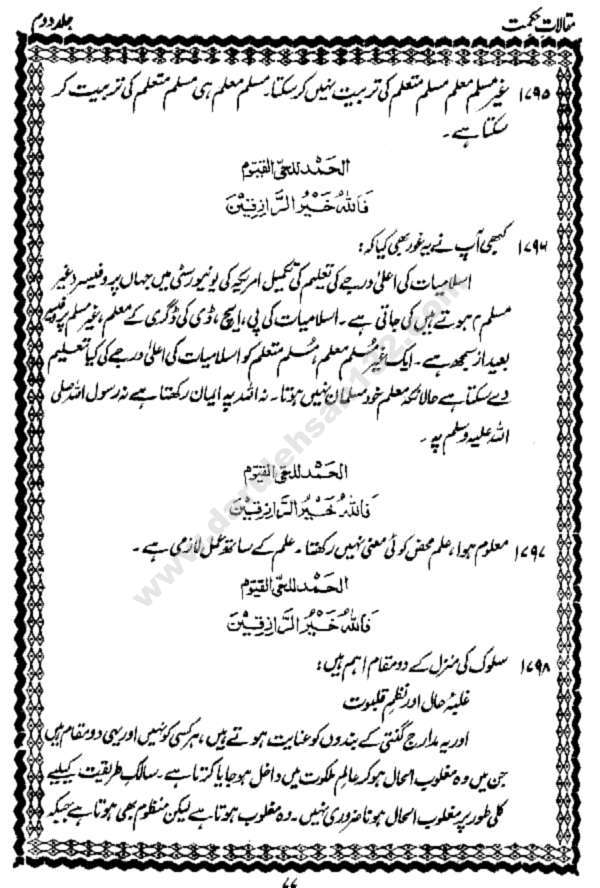 مقالات حکمت
جلد دوم
۱۷۹۵ غیر مسلم معلم مسلم متعلم کی تربیت نہیں کر سکتا۔ مسلم معلم ہی مسلم متعلم کی تربیت کر
سکتا ہے۔
الحمد للحی القیوم
فاللہ خیر الرازقین
۱۷۹۶ کبھی آپ نے یہ غور بھی کیا کہ:
اسلامیات کی اعلیٰ درجے کی تعلیم کی تکمیل امریکہ کی یونیورسٹی میں جہاں پروفیسر (غیر
مسلم) ہوتے ہیں کی جاتی ہے۔ اسلامیات کی پی، ایچ، ڈی کی ڈگری کے معلم، غیر مسلم پروفیسر
بعید از سمجھ ہے۔ ایک غیر مُسلم معلم، مُسلم متعلم کو اسلامیات کی اعلیٰ درجے کی کیا تعلیم
دے سکتا ہے حالانکہ معلم خود مسلمان نہیں ہوتا۔ نہ اللہ پہ ایمان رکھتا ہے نہ رسول اللہ صلی
اللہ علیہ وسلم پہ۔
الحمد للحی القیوم
فاللہ خیر الرازقین
۱۷۹۷ معلوم ہوا، علم محض کوئی معنی نہیں رکھتا۔ علم کے ساتھ عمل لازمی ہے۔
الحمد للحی القیوم
فاللہ خیر الرازقین
۱۷۹۸ سلوک کی منزل کے دو مقام اہم ہیں:
غلبۂ حال اور نظمِ قلبوت
اور یہ مدارج گنتی کے بندوں کو عنایت ہوتے ہیں، ہر کسی کو نہیں اور یہی دو مقام ہیں
جن میں وہ مغلوب الحال ہو کر عالم ملکوت میں داخل ہو جایا کرتا ہے۔ سالکِ طریقت کیلیے
کلی طور پر مغلوب الحال ہونا ضروری نہیں۔ وہ مغلوب ہوتا ہے لیکن منظوم بھی ہوتا ہے جبکہ
۷۷
www.darulehsan132.com